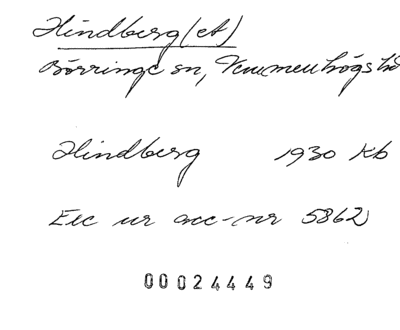 Hindberg (et)
Börringe sn, Vemmenhögs hd
Hindberg 1930 Kb
Exc ur acc-nr 5862
00024449